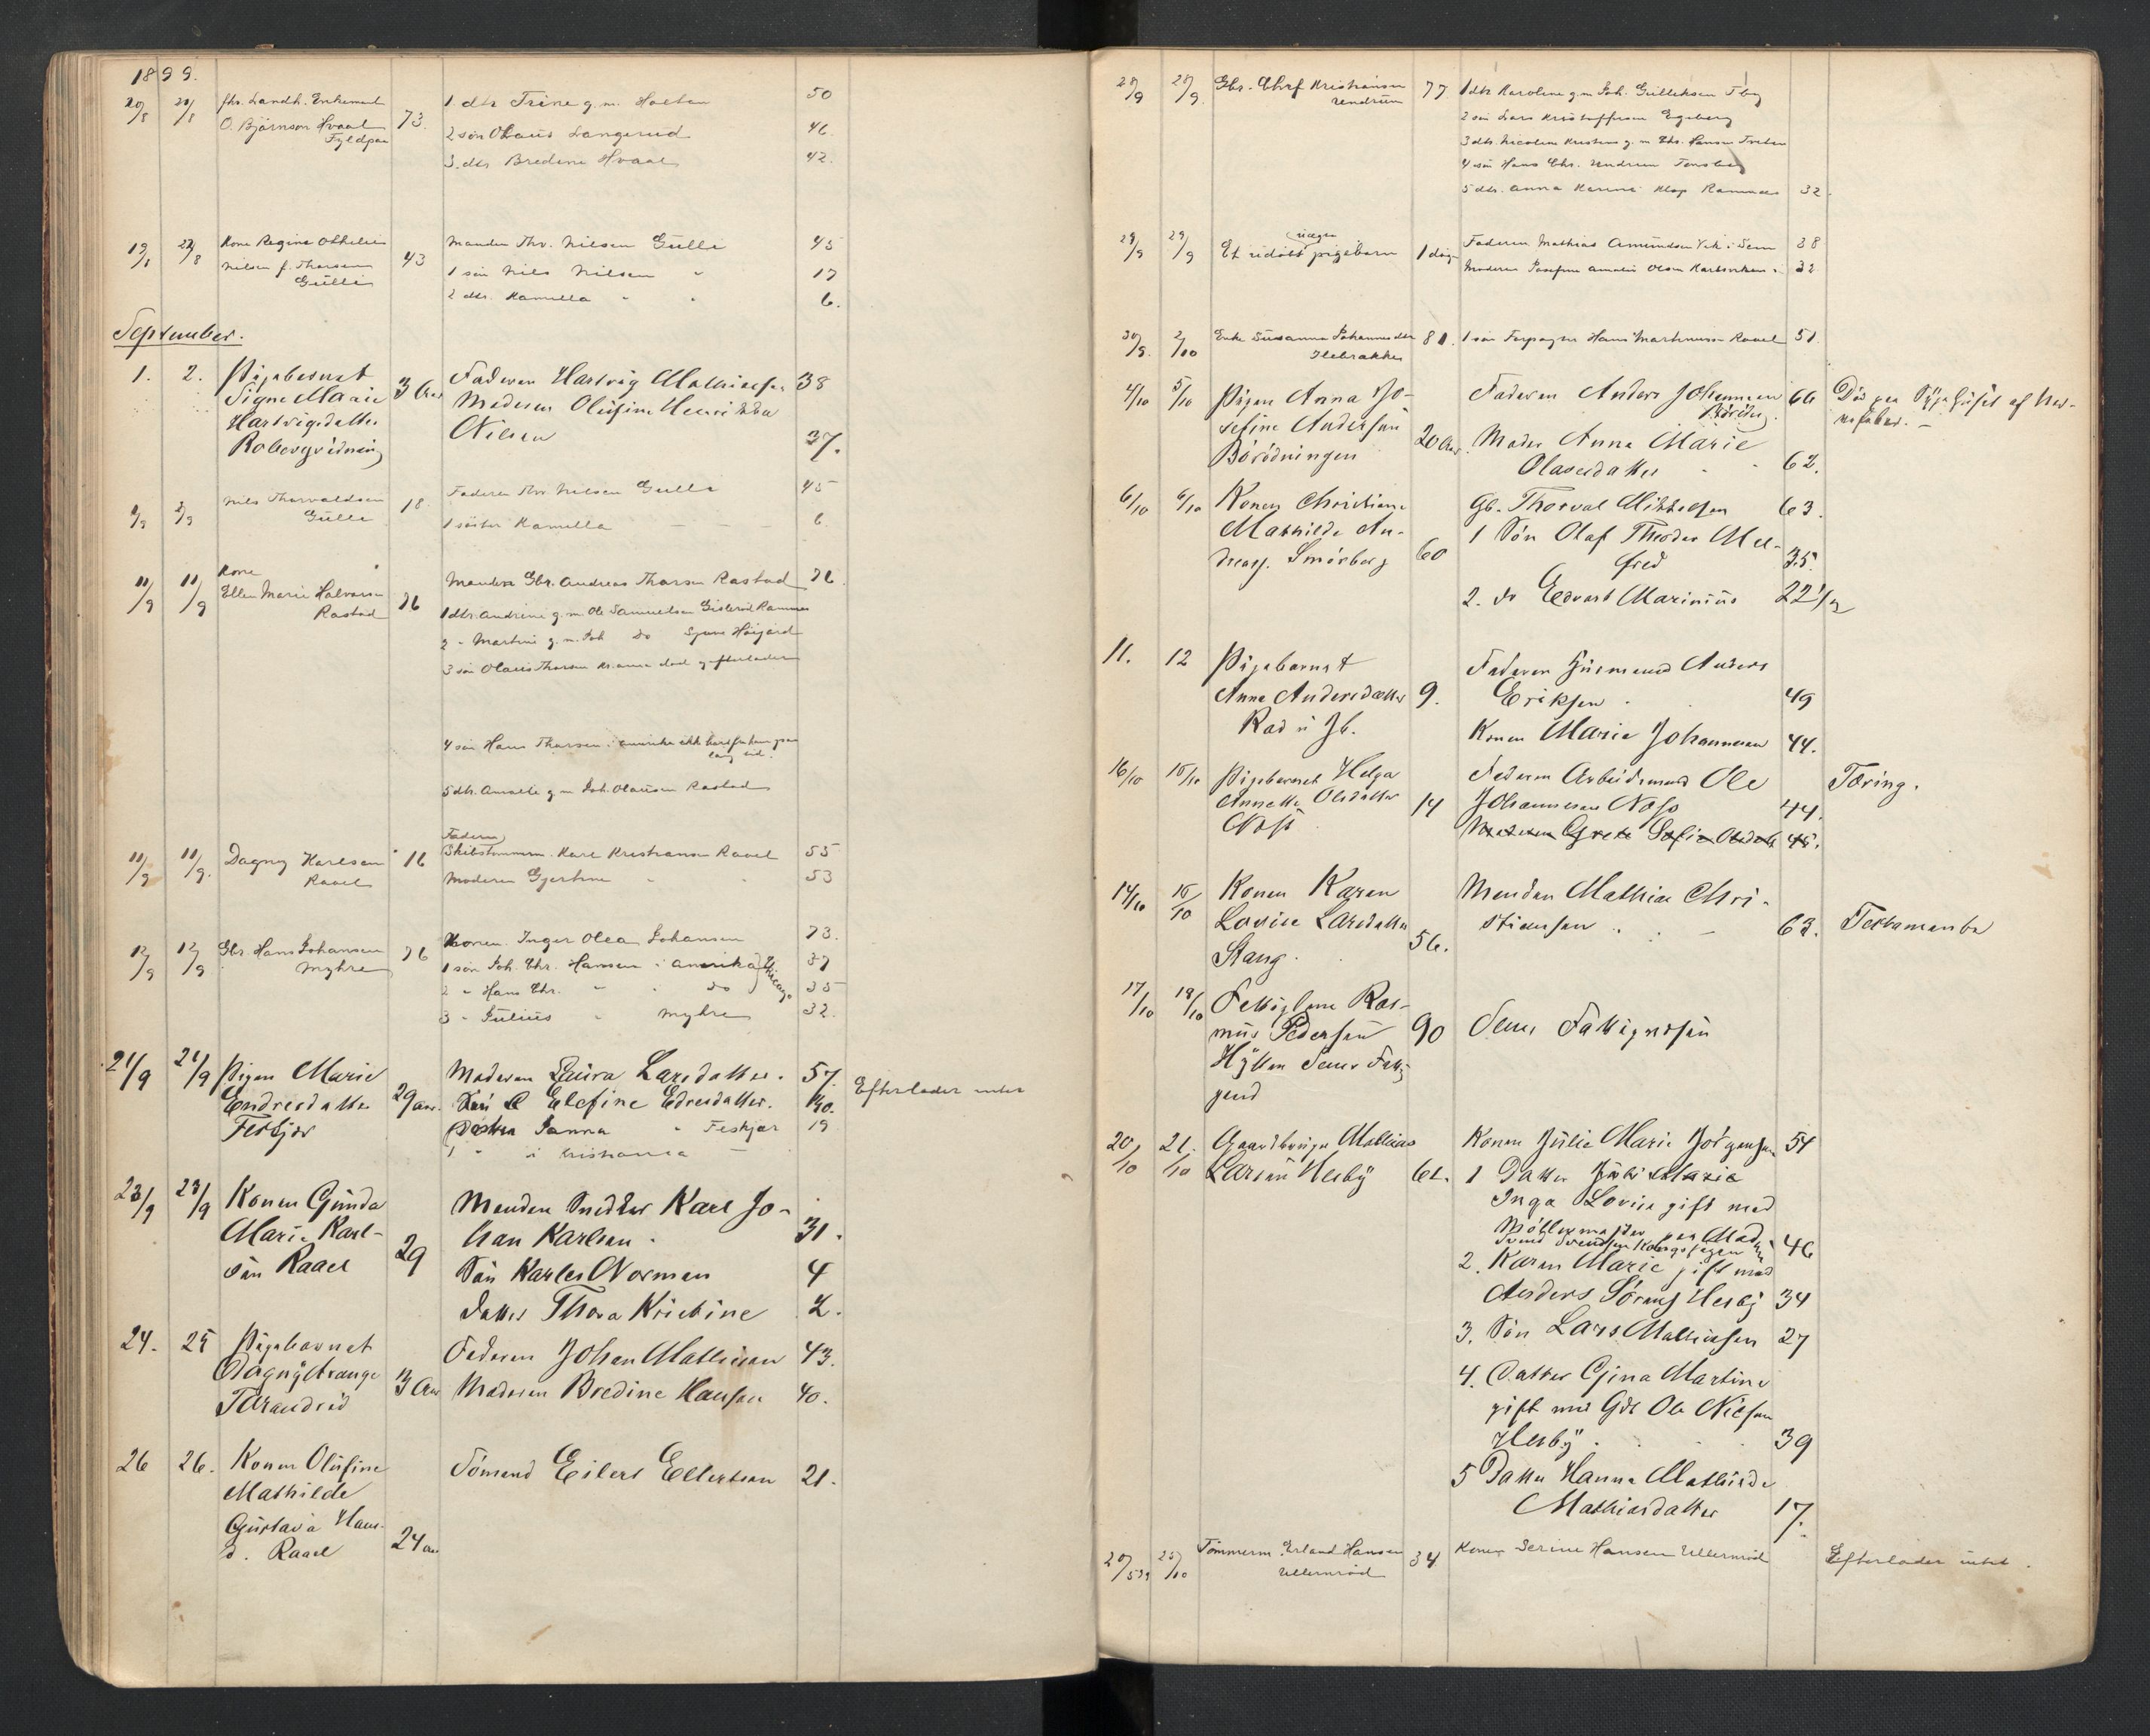 1899.
20/8 20/8 fhv. Landh. Enkemand
O. Bjørnson Hvaal 73.
1 dtr Trine g. m. Holtan 50
2 søn Olaus Langerud 46.
3. dtr Bredine Hvaal 42.
19/8 22/8 Kone Regine Othelie
Nilsen f. Thorsen 43
Gulli
Manden Thv. Nilsen Gulli 45
1 søn Nils Nilsen " 17
2 dtr. Kamilla " " 6.
September.
1. 2. Pigebarnet
Signe Marie 3 Aar
Hartvigsdatter
Faderen Hartvig Mathiesen 38
Moderen Olufine
Nilsen 37.
2/9 Nils Thorvaldsen 18
Gulli
Faderen Thv. Nilsen Gulli 45
1 søster Kamilla 6.
11/9 11/9 Kone
Ellen Marie Halvorsen 76
Rastad
Manden Gbr. Andreas Thorsen Rastad 76
1 dtr. Andrine g. m. Ole Samuelsen Gislerød Ramnes
2 - Martine g. m. Joh do
3 søn Olaus Thorsen
4 søn Hans Thorsen i amerika ikke hørt fra ham paa
lang tid.
5 dtr. Amalie g m Joh. Olausen Rastad
11/9 11/9. Dagny Karlsen 16
Raael
Faderen
Karl Kristiansen Raael 55
Moderen Gjertine " " 53
12/9 12/9 Gbr. Hans Johansen 76
Myhre
Konen. Inger Olea Johansen 73.
1 søn Joh. Chr. Hansen i amerika 37
Chicago
2 " Hans Chr. " " do 35
3 " Julius " Myhre 32.
21/9 21/9 Pigen Marie
Endresdatter 29 aar.
Moderen Laura Larsdatter. 57.
Elefine Edresdatter. 40.
Janna " Feskjær 19
1 " i Kristiania -
Efterlader intet
23/9 23/9 Konen Gunda
Marie Karl-
sen Raael 29
Manden Snedker Karl Jo-
han Karlsen. 31.
Søn Karles Norman 4
Datter Thora Kristine 2.
24. 25 Pigebarnet
3 Aar
Faderen Johan Mathisen 43.
Moderen Bredine Hansen 40.
26 26. Konen Olufine
Mathilde
Gustava Hans-
d. Raael 24 aar
Sømand Eilert Ellertsen 21.
28/9 28/9. Gbr. Chrf Kristiansen 77
Undrum
1 dtr Karoline g m Joh. Gulliksen Tbg
2 søn Lars Kristoffersen Egeberg
3 dtr. Nicoline Kristine g. m Chr. Hansen
4 søn Hans Chr. Undrum Tønsberg
5 dtr. Anna Karine Klop Ramnes 32.
29/9 29/9 Et udøbt pigebarn 1 dag
uægte
Faderen Mathias Amundsen Vik i Sem 38
Moderen Josefine Amalie Olsen 32
30/9. 2/10 Enke Susanna Johannesdtr 81.
Ilebrække
1 søn Hans Martinusen Raael 51.
4/10 5/10 Pigen Anna Jo-
sefine Andersen 20 Aar.
Børødningen
Faderen Anders Johannesen 66
Moder Anna Marie
Olavesdatter 62.
Død paa Sygehuset af Ner-
vefeber. -
6/10 6/10 Konen Christiane
Mathilde An-
dreas. Smørberg 60
Gb. Thorval Mikkelsen 63.
1 Søn Olaf Theodor Al-
fred 35.
2. do Edvart Marinius 22 1/2
11. 12 Pigebarnet
Anna Andersdatter 9.
Faderen Husmand Anders
Eriksen . 49
Konen Marie Johannesen 44.
16/10 15/10 Pigebarnet Helga
Annette Olsdatter 14
Faderen Arbeidsmand Ole
Johannesen 44.
Moderen Grete Sofie Olsdatter 45.
Tæring.
14/10 16/10 Konen Karen
Lovise Larsdatter
Stang. 56.
Manden Mathias Chri-
stiansen . . - 63.
Testamente
17/10 19/10 Fattiglem Ras-
mus Pedersen 90
Sems Fattigvæsen
20/10 21./10 Gaardbruger Mathias
Larsen Hesby 61.
Konen Julie Marie Jørgensen 54
1 Datter
Inga Lovise gift med
46
2. Karen Marie gift med
Anders Sørens Hesby 34
3. Søn Lars Mathiesen 27
4. Datter Gina Martine
gift med Gdb Ole Nielsen
Hesby . . . 39
5 Datter Hanna Mathilde
Mathiasdatter 17.
25/10 Tømmerm. Erland Hansen 34
Ullernrød
Konen Serine Hansen Ullernrød
Efterlader intet.